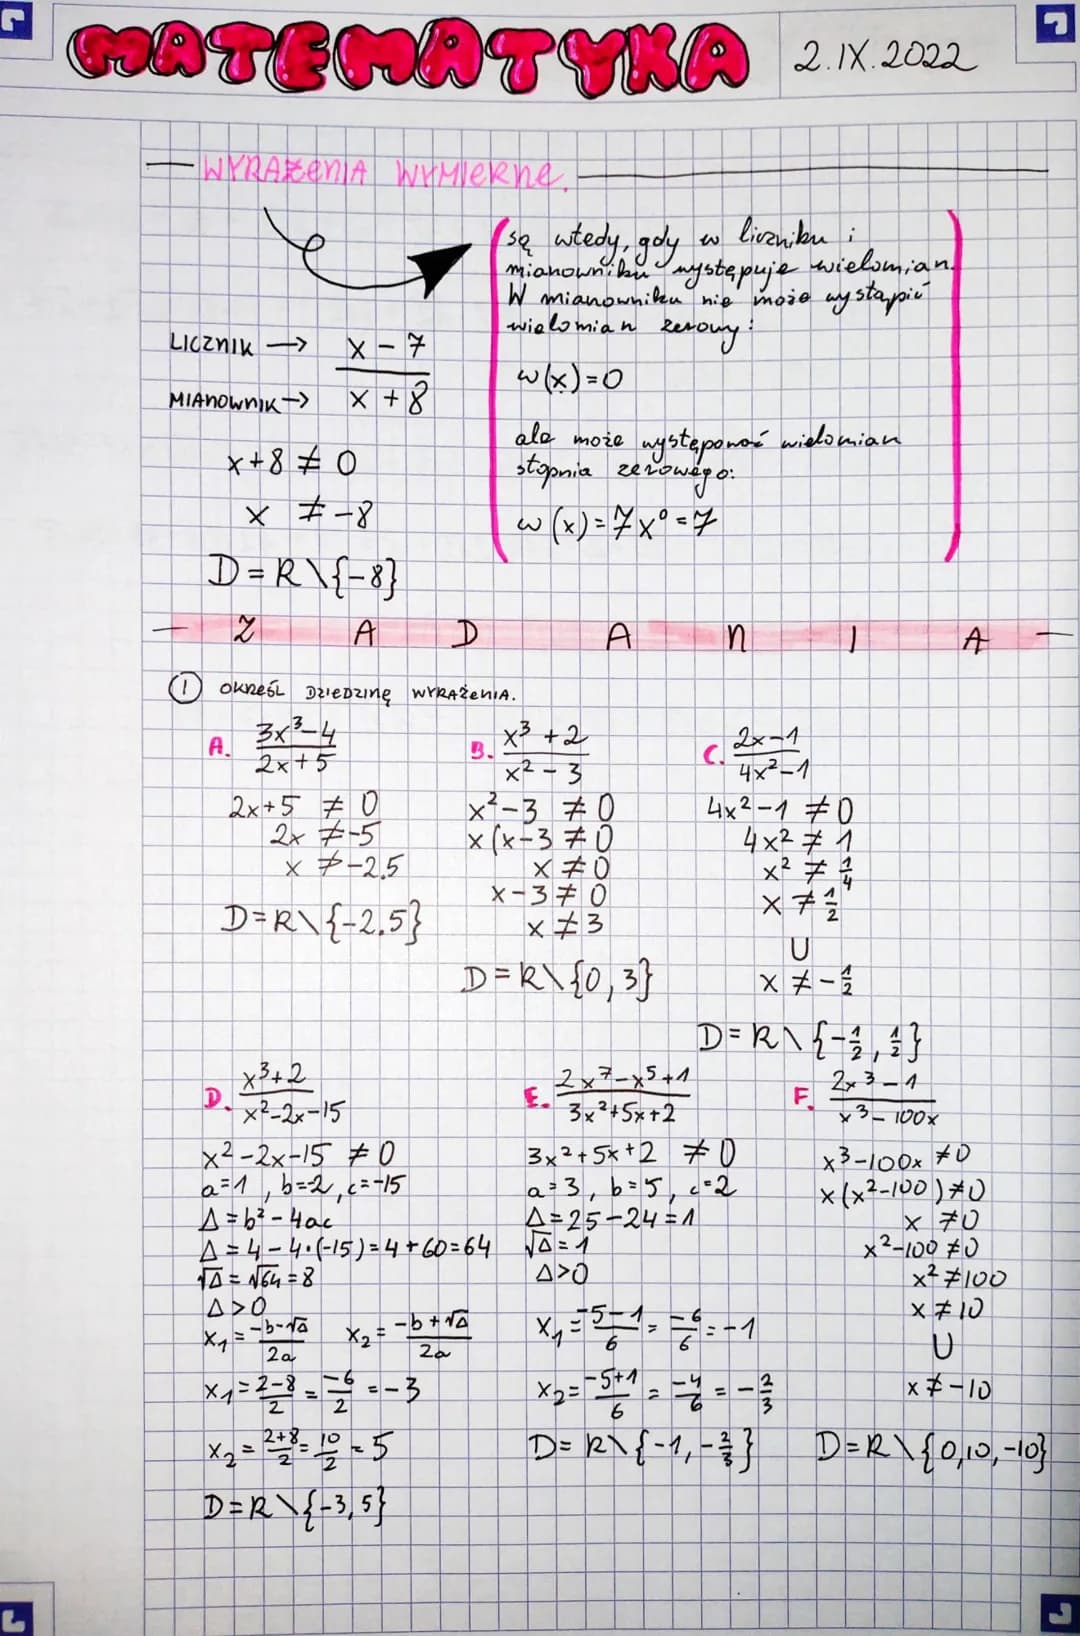 MATEMATYKA 2.IX.2022
WYRAŻENIA WYMIERNE.
są wtedy, gdy w liczniku i
mianowniku występuje wielomian.
W mianowniku nie może wystąpić
wielomian zerowy:
w(x)=0
ale może występować wielomian
stopnia zerowego:
w(x)=7x⁰=7
LICZNIK → x-7
MIANOWNIK → x+8
x+8 ≠ 0
x ≠ -8
D=R\{-8}
ZADANIA
① OKREŚL DZIEDZINĘ WYRAŻENIA.
A. (3x³-4)/(2x+5)
2x+5 ≠ 0
2x ≠ -5
x ≠ -2,5
D=R\{-2,5}
B. (x³+2)/(x²-3)
x²-3 ≠ 0
x(x-3 ≠ 0
x ≠ 0
x-3 ≠ 0
x ≠ 3
D=R\{0,3}
C. (2x-1)/(4x²-1)
4x²-1 ≠ 0
4x² ≠ 1
x² ≠ 1/4
x ≠ 1/2
U
x ≠ -1/2
D=R\{-1/2, 1/2}
D. (x³+2)/(x²-2x-15)
x²-2x-15 ≠ 0
a=1, b=-2, c=-15
Δ=b²-4ac
Δ=4-4·(-15)=4+60=64
√Δ=√64=8
Δ>0
x₁=(-b-√Δ)/2a x₂=(-b+√Δ)/2a
x₁=(2-8)/2=-6/2=-3
x₂=(2+8)/2=10/2=5
D=R\{-3,5}
E. (2x⁷-x⁵+1)/(3x²+5x+2)
3x²+5x+2 ≠ 0
a=3, b=5, c=2
Δ=25-24=1
√Δ=1
Δ>0
x₁=(-5-1)/6=-6/6=-1
x₂=(-5+1)/6=-4/6=-2/3
D=R\{-1,-2/3}
F. (2x³-1)/(x³-100x)
x³-100x ≠ 0
x(x²-100) ≠ 0
x ≠ 0
x²-100 ≠ 0
x² ≠ 100
x ≠ 10
U
x ≠ -10
D=R\{0,10,-10}